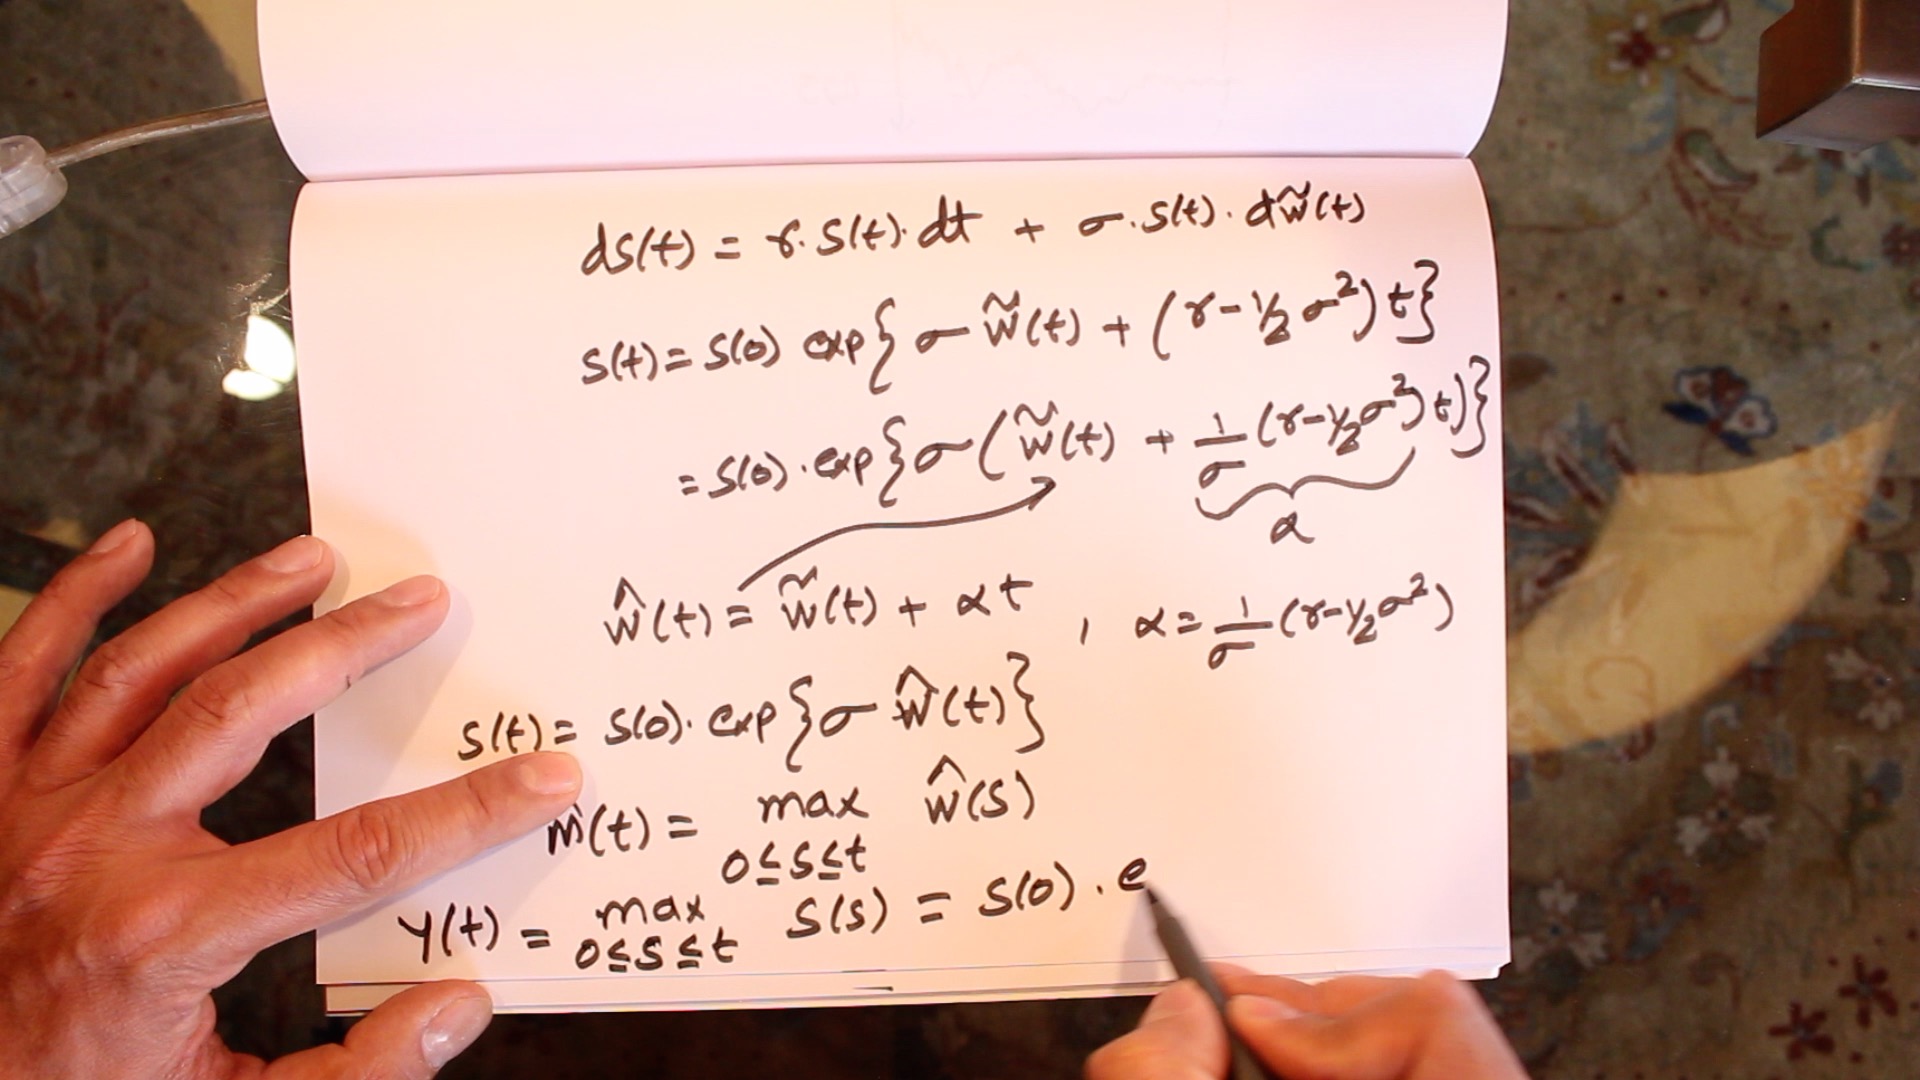 dS(t) = r. S(t). dt + σ. S(t). dW̃(t)
S(t) = S(0) exp{ σ W̃(t) + (r - 1/2 σ²) t}
= S(0). exp{σ (W̃(t) + 1/σ (r - 1/2 σ²) t)}
α
Ŵ(t) = W̃(t) + αt , α = 1/σ (r - 1/2 σ²)
S(t) = S(0). exp{σ Ŵ(t)}
M̂(t) = max 0≤s≤t Ŵ(s)
Y(t) = max 0≤s≤t S(s) = S(0) . e